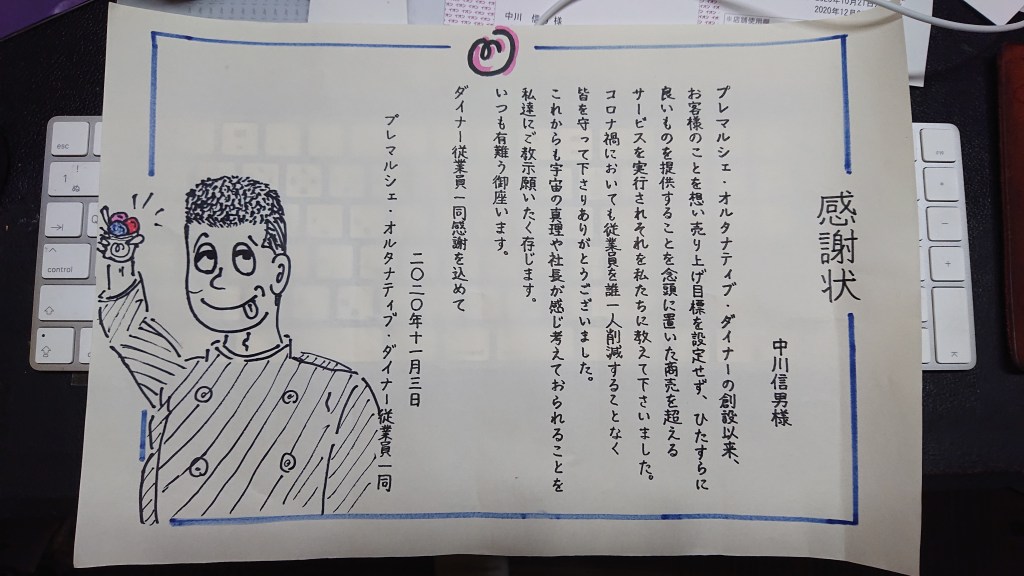 感謝状
中川信男様
プレマルシェ・オルタナティブ・ダイナーの創設以来、
お客様のことを想い売り上げ目標を設定せず、ひたすらに
良いものを提供することを念頭に置いた商売を超える
サービスを実行されそれを私たちに教えて下さいました。
コロナ禍においても従業員を誰一人削減することなく
皆を守って下さりありがとうございました。
これからも宇宙の真理や社長が感じ考えておられることを
私達にご教示願いたく存じます。
いつも有難う御座います。
ダイナー従業員一同感謝を込めて
二〇二〇年十一月三日
プレマルシェ・オルタナティブ・ダイナー従業員一同
中川 信 様
2020年12月
esc
control